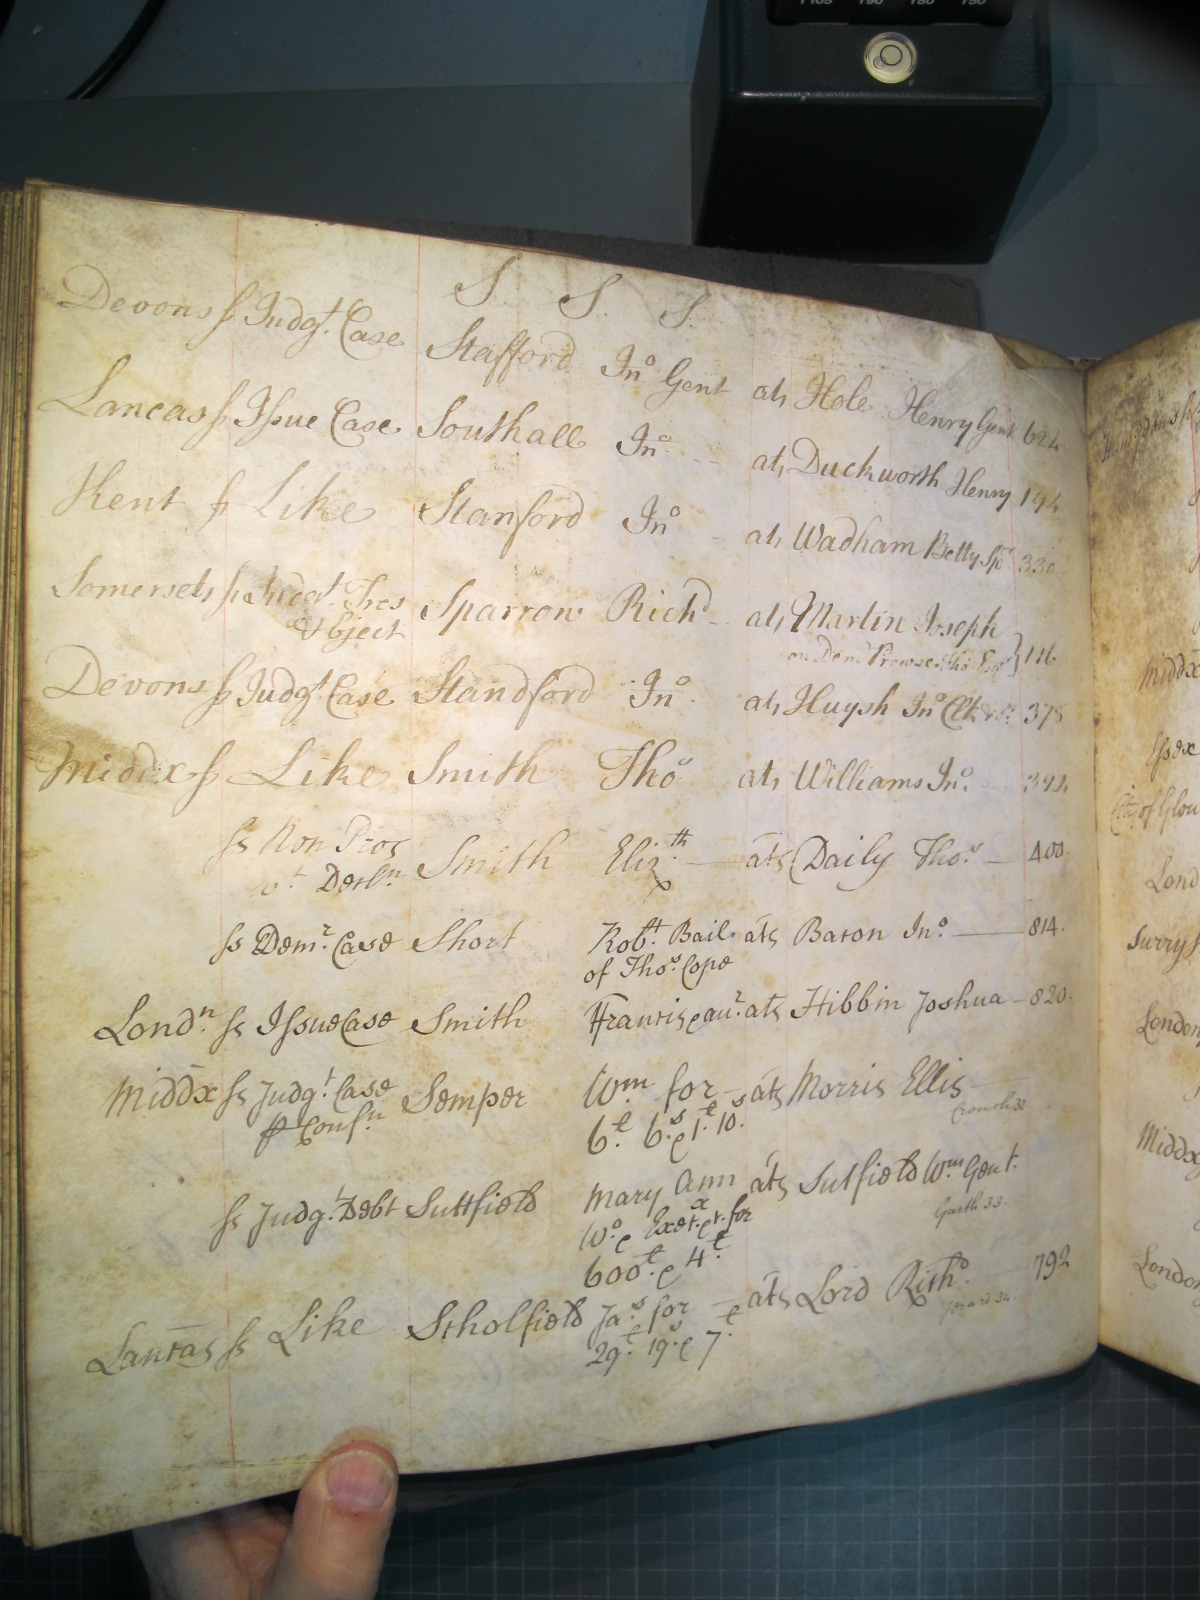 S. S. S.
Devons ss Judgt. Case Stafford Jno Gent ats Hole Henry Gent 624
Lancas ss Issue Case Southall Jno -- ats Duckworth Henry 194
Kent ss Like Stanford Jno - ats Wadham Betty Spr 330
Somersets ss Judgt. Tres Sparrow Richd - ats Martin Joseph
& Eject on Demr Prowse Tho. Esqr } 116
Devons ss Judgt. Case Standford Jno. ats Huysh Jno Clk &c. 378
Middx ss Like Smith Thos ats Williams Jno. 392
ss Non Pros Smith Elizth. — ats Daily Thos. — 400
wt. Decln.
ss Demr. Case Short Robt. Bail ats Baron Jno. — 814.
of Thos. Cope
Londn. ss Issue Case Smith Francis & aur. ats Hibbin Joshua — 820.
Middx ss Judgt. Case Semper Wm for — ats Morris Ellis —
p Confn. 6£. 6s. & 1£. 10s. Crouch 32
ss Judgt. Debt Suttfield Mary Ann ats Sutfield Wm Gent.
Wo. & Exetx. &c. for Garth 33.
600£. & 4£.
Lancas ss Like Scholfield Jas. for — ats Lord Richd. — 792
29£. 19s. & 7£.
Middx
Essex
City of Glou
Lond
Surry ss
London
Middx
London